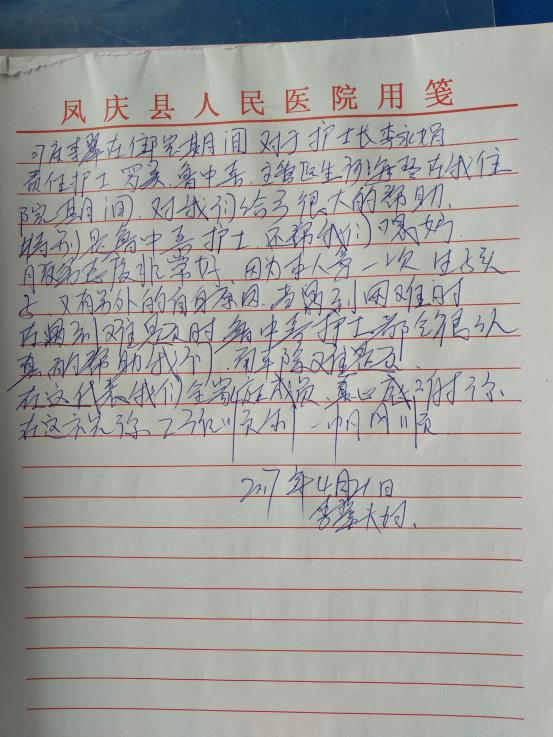 凤庆县人民医院用笺
李翠在住院期间 对于护士长李永娟
责任护士 罗 鲁中春、主管医生 在我住
院期间，对我们给予很大的帮助，
特别是鲁中春护士，还帮我们喂奶
服务态度非常好，因为本人第一次生
又有另外的自身原因，当遇到困难时
在遇到难 时 鲁中春护士都会很认
真的帮助我们
在这代表我们全家庭成员，真心感谢你
在这 你、工作顺利 一帆风顺
2017年4月21日
李翠夫妇、